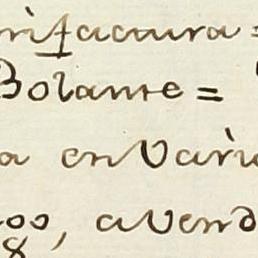 rifacaura=
Bolante=
a en Vari
os, a Vend